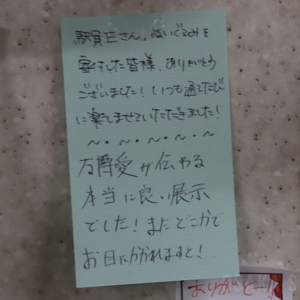 駅員さん、ぬいぐるみを
寄付した皆様、ありがとう
ございました！いつも通るたび
に楽しませていただきました！
〜・〜・〜・〜・〜
愛が伝わる
本当に良い展示
でした！またどこかで
お目にかかれますと！
ありがとー!!